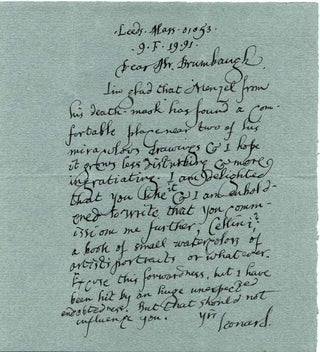 ·Leeds·Mass·01053·
·9·F·19·91·
Dear Mr. Brumbaugh.
I'm glad that Menzel from
his death-mask has found a com-
fortable place near two of his
miraculous drawings & I hope
it grows less disturbing & more
ingratiating. I am delighted
that you like it & I am embold-
ened to write that you comm-
ission me further, Cellini?
a book of small watercolors of
artists portraits or whatever.
Excuse this forwardness, but I have
been hit by an huge unexpected
indebtedness. But that should not
influence you. Yrs
Leonard.